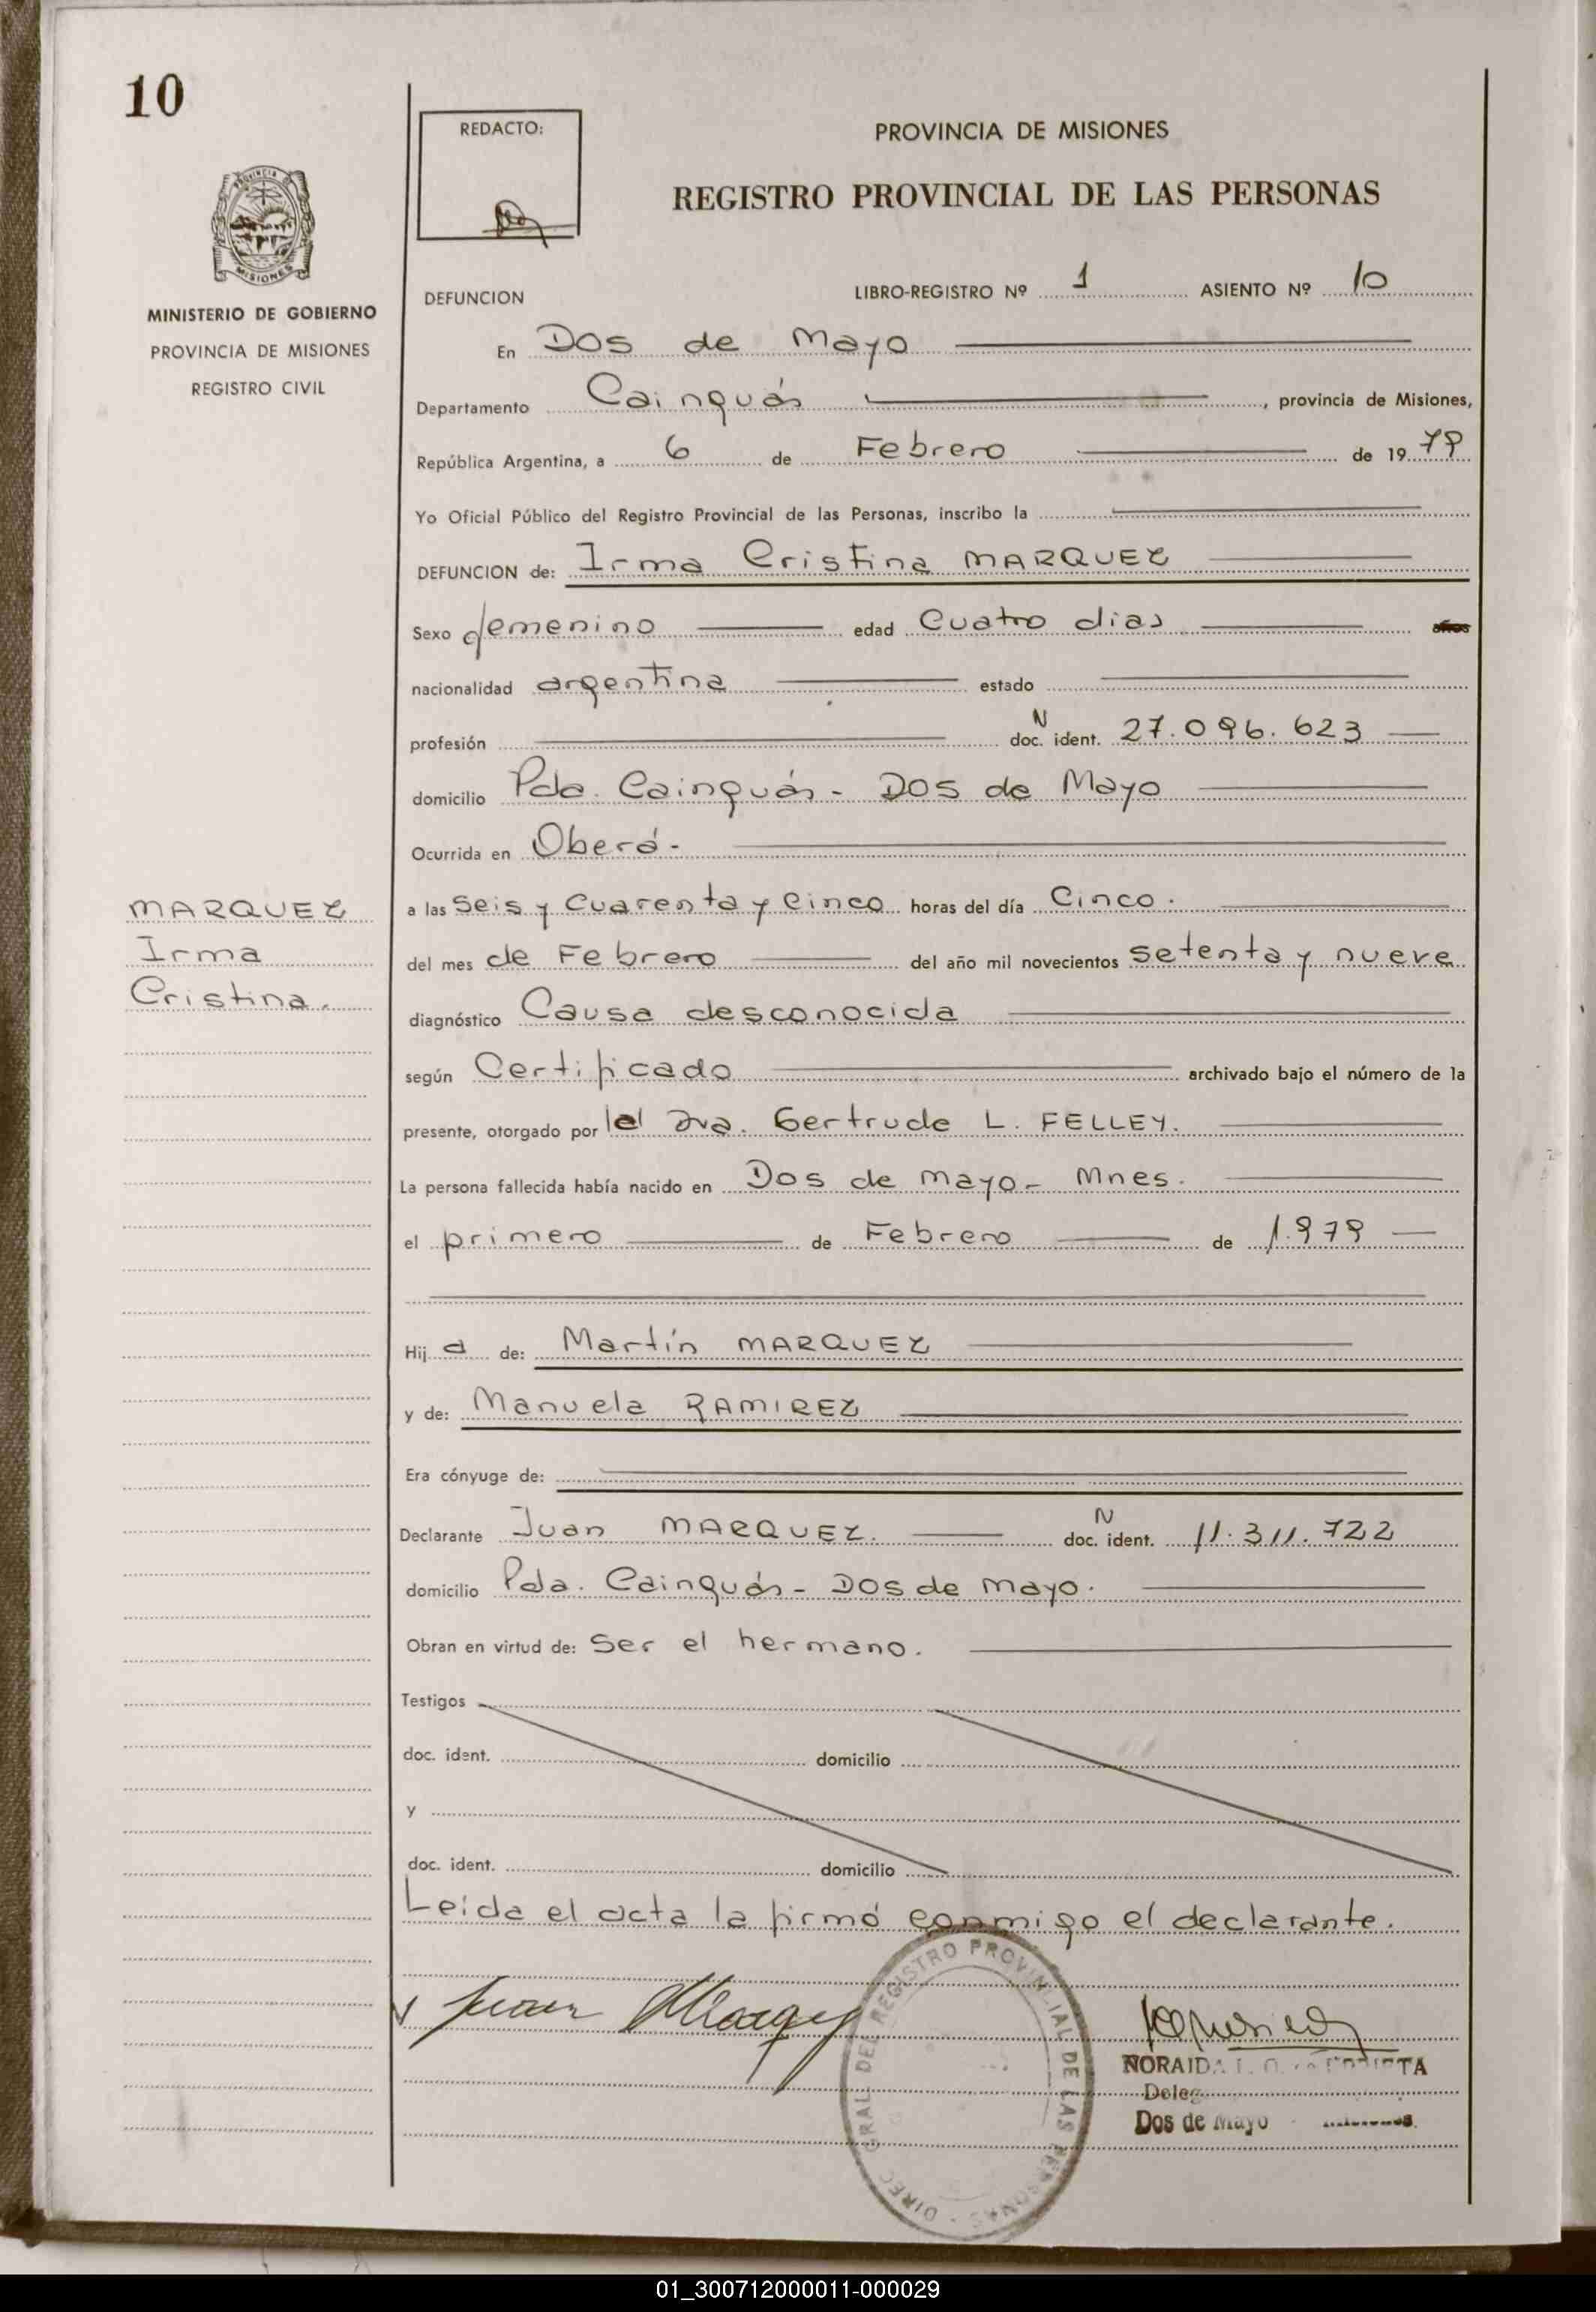 10
REDACTO:
PROVINCIA DE MISIONES
REGISTRO PROVINCIAL DE LAS PERSONAS
PROVINCIA DE
MISIONES
MINISTERIO DE GOBIERNO
PROVINCIA DE MISIONES
REGISTRO CIVIL
DEFUNCION LIBRO-REGISTRO Nº 1 ASIENTO Nº 10
En Dos de Mayo
Departamento Cainguás, provincia de Misiones,
República Argentina, a 6 de Febrero de 1979
Yo Oficial Público del Registro Provincial de las Personas, inscribo la
DEFUNCION de: Irma Cristina MARQUEZ
Sexo femenino edad Cuatro dias años
nacionalidad argentina estado
profesión doc. N ident. 27.096.623
domicilio Pda. Cainguás - Dos de Mayo
Ocurrida en Oberá -
a las Seis y Cuarenta y Cinco horas del día Cinco.
del mes de Febrero del año mil novecientos setenta y nueve
diagnóstico Causa desconocida
según Certificado archivado bajo el número de la
presente, otorgado por la Dra. Gertrude L. FELLEY.
La persona fallecida había nacido en Dos de mayo - Mnes.
el primero de Febrero de 1.979
Hija de: Martín MARQUEZ
y de: Manuela RAMIREZ
Era cónyuge de:
Declarante Juan MARQUEZ. doc. N ident. 11.311.722
domicilio Pda. Cainguás - Dos de mayo.
Obran en virtud de: Ser el hermano.
Testigos
doc. ident. domicilio
y
doc. ident. domicilio
Leída el acta la firmó conmigo el declarante.
MARQUEZ
Irma
Cristina.
Juan Marquez
DIREC. GRAL. DEL REGISTRO PROVINCIAL DE LAS PERSONAS
NORAIDA
Deleg
Dos de Mayo
01_300712000011-000029